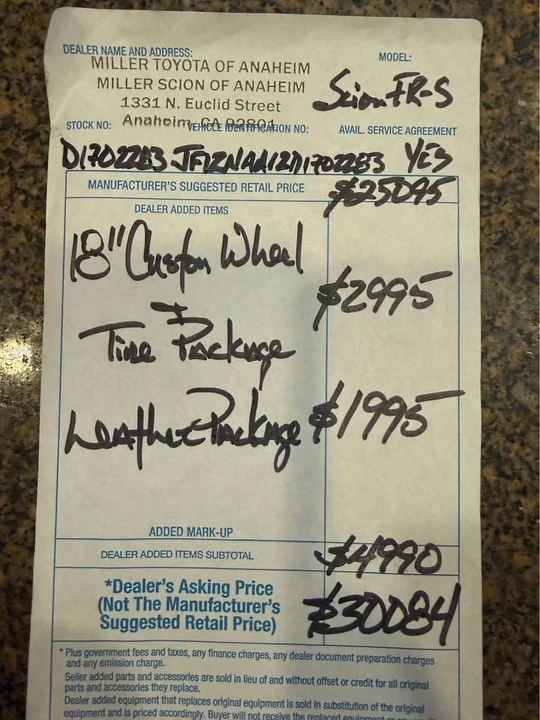 DEALER NAME AND ADDRESS:
MODEL:
MILLER TOYOTA OF ANAHEIM
MILLER SCION OF ANAHEIM
1331 N. Euclid Street
Anaheim, CA 92801
Scion FR-S
STOCK NO:
VEHICLE IDENTIFICATION NO:
AVAIL. SERVICE AGREEMENT
D1702223 JF1ZNAA12D1702223 YES
MANUFACTURER'S SUGGESTED RETAIL PRICE $25095
DEALER ADDED ITEMS
18" Custom Wheel
$2995
+
Tire Package
Leather Package $1995
ADDED MARK-UP
DEALER ADDED ITEMS SUBTOTAL $4990
*Dealer's Asking Price
(Not The Manufacturer's
Suggested Retail Price) $30084
* Plus government fees and taxes, any finance charges, any dealer document preparation charges
and any emission charge.
Seller added parts and accessories are sold in lieu of and without offset or credit for all original
parts and accessories they replace.
Dealer added equipment that replaces original equipment is sold in substitution of the original
equipment and is priced accordingly. Buyer will not receive the replaced equipment